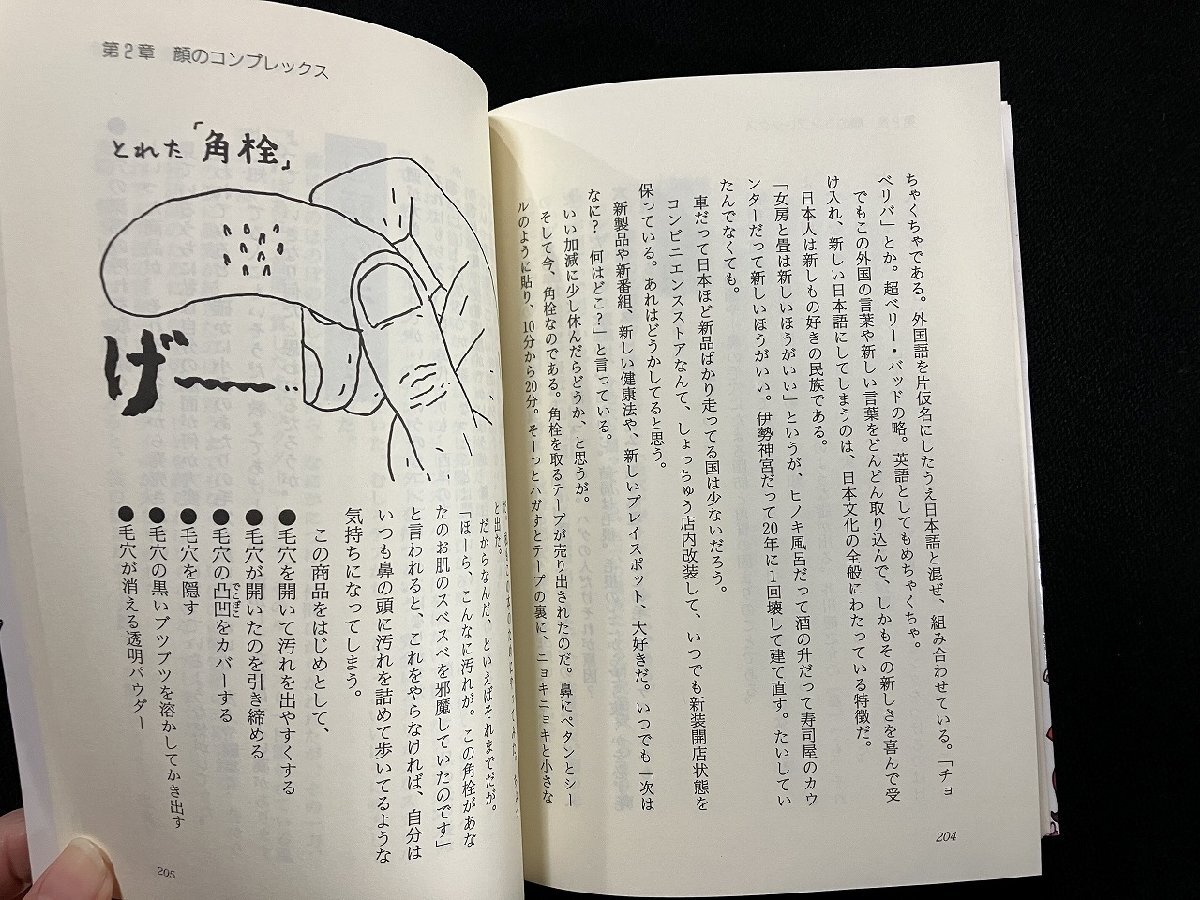 ちゃくちゃである。外国語を片仮名にしたうえ日本語と混ぜ、組み合わせている。「チョ
ベリバ」とか。超ベリー・バッドの略。英語としてもめちゃくちゃ。
でもこの外国の言葉や新しい言葉をどんどん取り込んで、しかもその新しさを喜んで受
け入れ、新しい日本語にしてしまうのは、日本文化の全般にわたっている特徴だ。
日本人は新しもの好きの民族である。
「女房と畳は新しいほうがいい」というが、ヒノキ風呂だって酒の升だって寿司屋のカウ
ンターだって新しいほうがいい。伊勢神宮だって20年に1回壊して建て直す。たいしてい
たんでなくても。
車だって日本ほど新品ばかり走ってる国は少ないだろう。
コンビニエンスストアなんて、しょっちゅう店内改装して、いつでも新装開店状態を
保っている。あれはどうかしてると思う。
新製品や新番組、新しい健康法や、新しいプレイスポット、大好きだ。いつでも一次は
なに？何はどこ？」と言っている。
いい加減に少し休んだらどうか、と思うが。
そして今、角栓なのである。角栓を取るテープが売り出されたのだ。鼻にペタンとシー
ルのように貼り、10分から20分。そーっとハガすとテープの裏に、ニョキニョキと小さな
204
第2章 顔のコンプレックス
とれた「角栓」
げー
と出た。
だからなんだ、といえばそれまでだが。
「ほーら、こんなに汚れが。この角栓があな
たのお肌のスベスベを邪魔していたのです」
と言われると、これをやらなければ、自分は
いつも鼻の頭に汚れを詰めて歩いてるような
気持ちになってしまう。
この商品をはじめとして、
●毛穴を開いて汚れを出やすくする
●毛穴が開いたのを引き締める
●毛穴の凸凹をカバーする
でこぼこ
●毛穴を隠す
●毛穴の黒いブツブツを溶かしてかき出す
●毛穴が消える透明パウダー
205